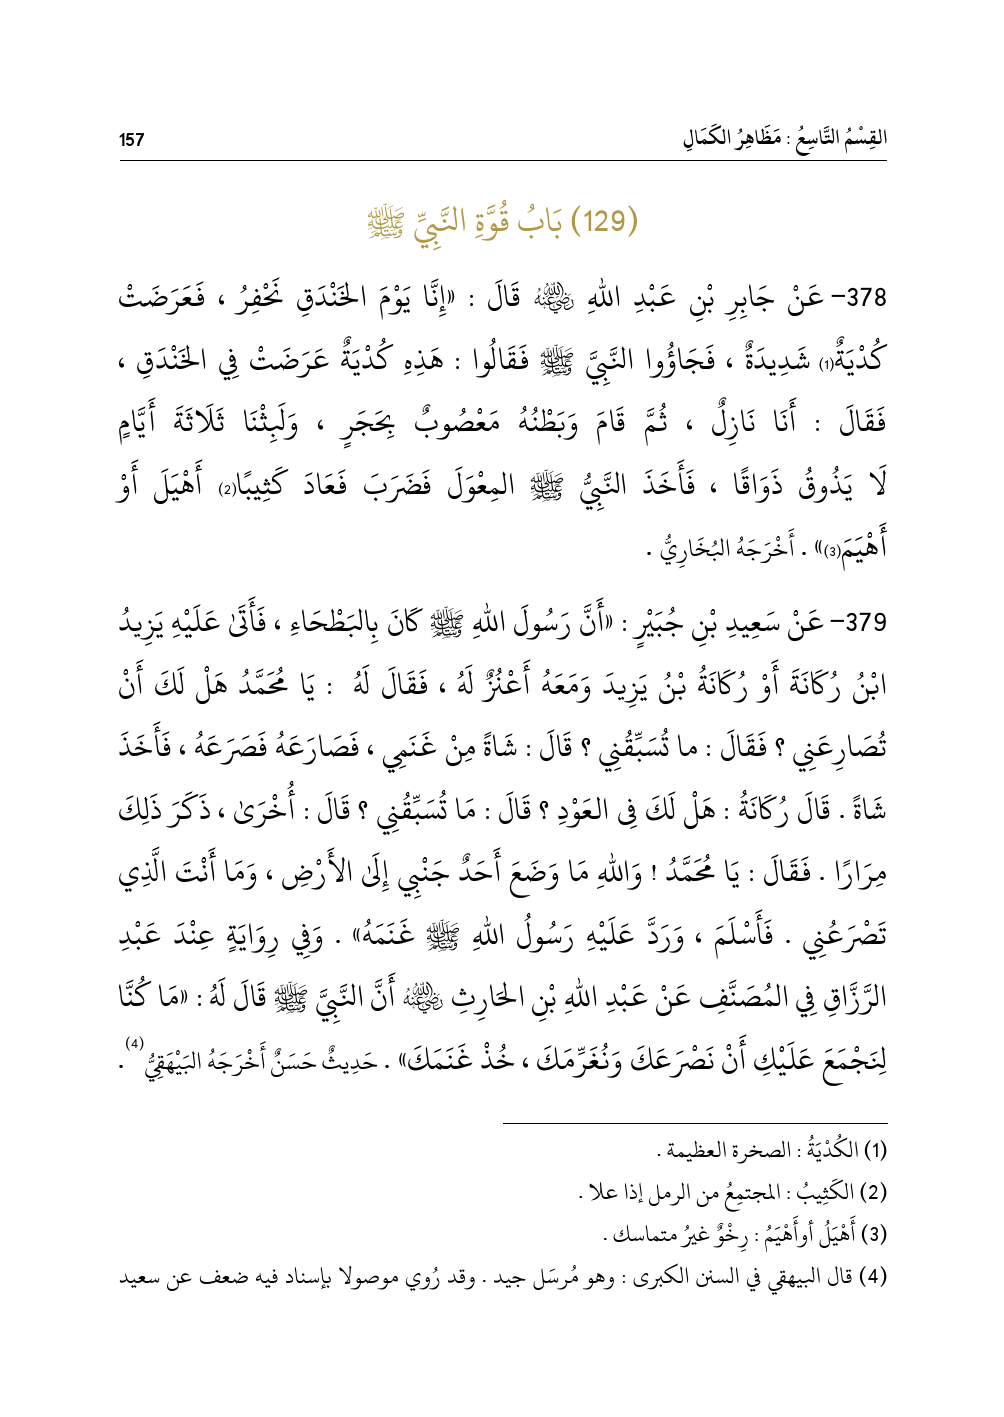 القِسْمُ التَّاسِعُ : مَظَاهِرُ الكَمَالِ 157
(129) بَابُ قُوَّةِ النَّبِيِّ ﷺ
378- عَنْ جَابِرِ بْنِ عَبْدِ اللهِ رضي الله عنه قَالَ : «إِنَّا يَوْمَ الخَنْدَقِ نَحْفِرُ ، فَعَرَضَتْ
كُدْيَةٌ(1) شَدِيدَةٌ ، فَجَاؤُوا النَّبِيَّ ﷺ فَقَالُوا : هَذِهِ كُدْيَةٌ عَرَضَتْ فِي الخَنْدَقِ ،
فَقَالَ : أَنَا نَازِلٌ ، ثُمَّ قَامَ وَبَطْنُهُ مَعْصُوبٌ بِحَجَرٍ ، وَلَبِثْنَا ثَلَاثَةَ أَيَّامٍ
لَا يَذُوقُ ذَوَاقًا ، فَأَخَذَ النَّبِيُّ ﷺ المِعْوَلَ فَضَرَبَ فَعَادَ كَثِيبًا(2) أَهْيَلَ أَوْ
أَهْيَمَ(3)» . أَخْرَجَهُ البُخَارِيُّ .
379- عَنْ سَعِيدِ بْنِ جُبَيْرٍ : «أَنَّ رَسُولَ اللهِ ﷺ كَانَ بِالبَطْحَاءِ ، فَأَتَىٰ عَلَيْهِ يَزِيدُ
ابْنُ رُكَانَةَ أَوْ رُكَانَةُ بْنُ يَزِيدَ وَمَعَهُ أَعْنُزٌ لَهُ ، فَقَالَ لَهُ : يَا مُحَمَّدُ هَلْ لَكَ أَنْ
تُصَارِعَنِي ؟ فَقَالَ : ما تُسَبِّقُنِي ؟ قَالَ : شَاةً مِنْ غَنَمِي ، فَصَارَعَهُ فَصَرَعَهُ ، فَأَخَذَ
شَاةً . قَالَ رُكَانَةُ : هَلْ لَكَ فِى العَوْدِ ؟ قَالَ : مَا تُسَبِّقُنِي ؟ قَالَ : أُخْرَىٰ ، ذَكَرَ ذَلِكَ
مِرَارًا . فَقَالَ : يَا مُحَمَّدُ ! وَاللهِ مَا وَضَعَ أَحَدٌ جَنْبِي إِلَىٰ الأَرْضِ ، وَمَا أَنْتَ الَّذِي
تَصْرَعُنِي . فَأَسْلَمَ ، وَرَدَّ عَلَيْهِ رَسُولُ اللهِ ﷺ غَنَمَهُ» . وَفِي رِوَايَةٍ عِنْدَ عَبْدِ
الرَّزَّاقِ فِي المُصَنَّفِ عَنْ عَبْدِ اللهِ بْنِ الحَارِثِ رضي الله عنه أَنَّ النَّبِيَّ ﷺ قَالَ لَهُ : «مَا كُنَّا
لِنَجْمَعَ عَلَيْكِ أَنْ نَصْرَعَكَ وَنُغَرِّمَكَ ، خُذْ غَنَمَكَ» . حَدِيثٌ حَسَنٌ أَخْرَجَهُ البَيْهَقِيُّ(4) .
(1) الكُدْيَةُ : الصخرة العظيمة .
(2) الكَثِيبُ : المجتمِعُ من الرمل إذا علا .
(3) أَهْيَلُ أوأَهْيَمُ : رِخْوٌ غيرُ متماسك .
(4) قال البيهقي في السنن الكبرى : وهو مُرسَل جيد . وقد رُوي موصولا بإسناد فيه ضعف عن سعيد